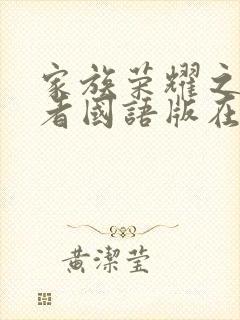 家族荣耀之
者國語版在
黄潔莹